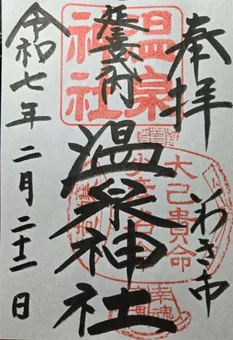 奉拝
いわき市
延喜式内
温泉神社
令和七年二月二十一日
温泉
神社
大己貴命